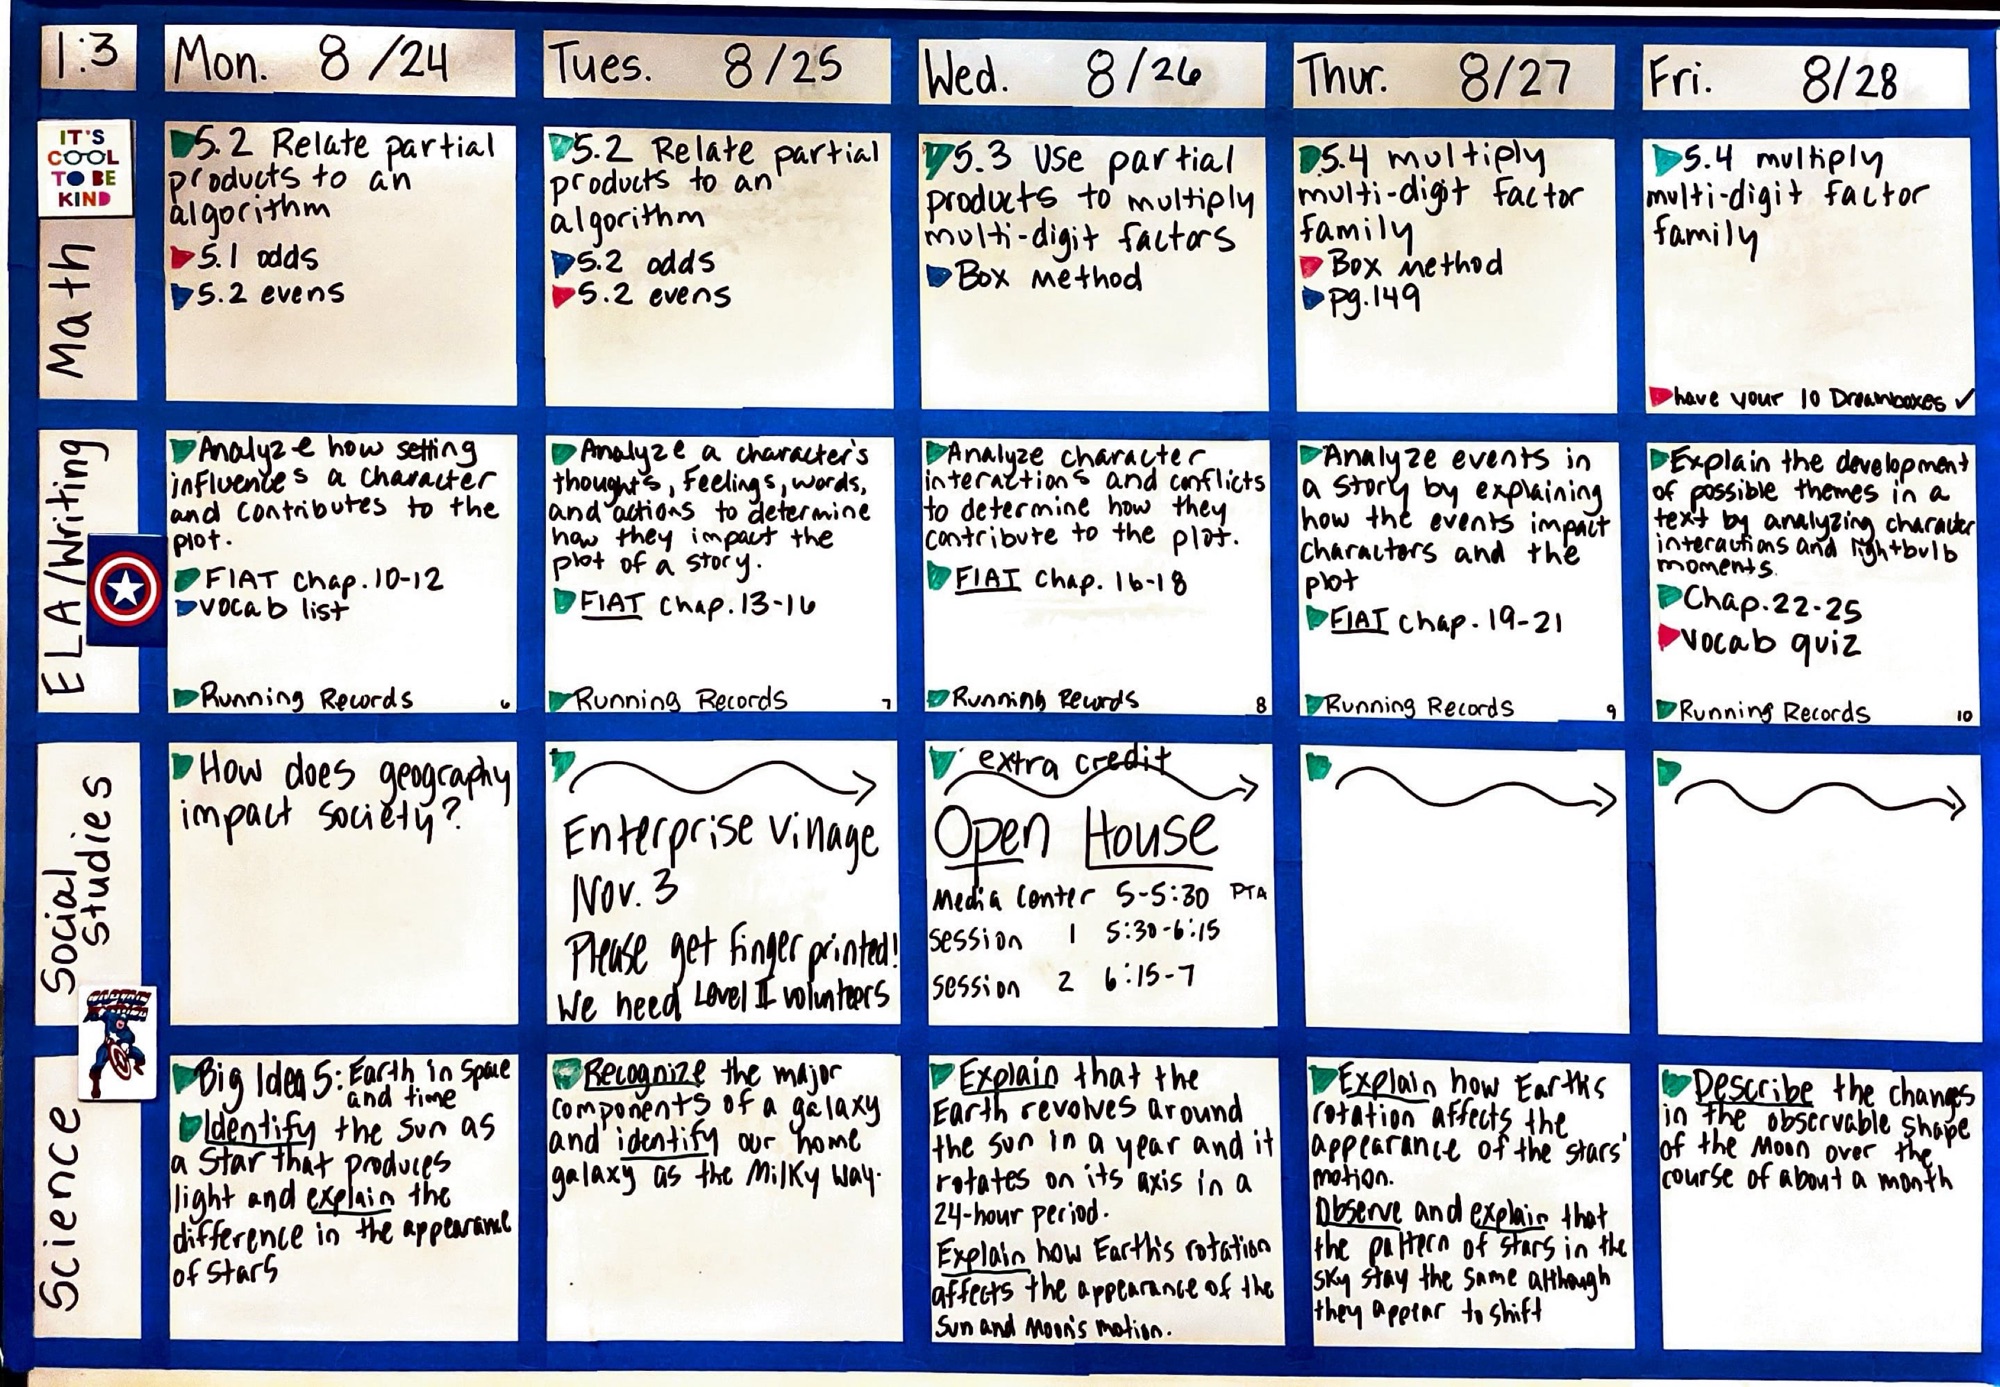 1:3
Mon. 8/24
Tues. 8/25
Wed. 8/26
Thur. 8/27
Fri. 8/28
IT'S
COOL
TO BE
KIND
Math
5.2 Relate partial
products to an
algorithm
5.1 odds
5.2 evens
5.2 Relate partial
products to an
algorithm
5.2 odds
5.2 evens
5.3 Use partial
products to multiply
multi-digit factors
Box method
5.4 multiply
multi-digit factor
family
Box method
pg.149
5.4 multiply
multi-digit factor
family
have your 10 Dreamboxes ✓
ELA/Writing
Analyze how setting
influences a character
and contributes to the
plot.
FIAT chap. 10-12
vocab list
Running Records 6
Analyze a character's
thoughts, feelings, words,
and actions to determine
how they impact the
plot of a story.
FIAT chap. 13-16
Running Records 7
Analyze character
interactions and conflicts
to determine how they
contribute to the plot.
FIAT chap. 16-18
Running Records 8
Analyze events in
a story by explaining
how the events impact
charactors and the
plot
FIAT chap. 19-21
Running Records 9
Explain the development
of possible themes in a
text by analyzing character
interactions and lightbulb
moments.
Chap. 22-25
vocab quiz
Running Records 10
Social
Studies
How does geography
impact society?
Enterprise Village
Nov. 3
Please get finger printed!
We need Level II volunteers
extra credit
Open House
Media Center 5-5:30 PTA
session 1 5:30-6:15
session 2 6:15-7
CAPTAIN
AMERICA
Science
Big Idea 5: Earth in Space
and time
Identify the sun as
a star that produces
light and explain the
difference in the appearance
of stars
Recognize the major
components of a galaxy
and identify our home
galaxy as the Milky Way.
Explain that the
Earth revolves around
the sun in a year and it
rotates on its axis in a
24-hour period.
Explain how Earth's rotation
affects the appearance of the
Sun and Moon's motion.
Explain how Earth's
rotation affects the
appearance of the stars'
motion.
Observe and explain that
the pattern of stars in the
sky stay the same although
they appear to shift
Describe the changes
in the observable shape
of the Moon over the
course of about a month